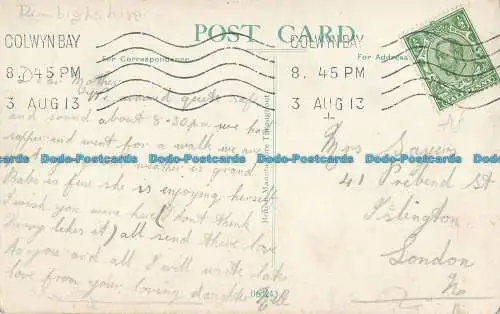 Denbighshire
POST CARD
COLWYN BAY
8.45 PM
3 AUG 13
COLWYN BAY
8.45 PM
3 AUG 13
For Correspondence
For Address
British Manufacture Throughout
Dear Mother
We arrived quite safe
and sound about 8-30 p.m we had
supper and went for a walk we are
weather is grand
Babs is fine she is enjoying herself
I wish you were here (I don't think
likes it) all send there love
to you and all I will write later
love from your loving daughter Nell
Mrs
41 Prebend St
Islington
London
N.
Dodo-Postcards Dodo-Postcards Dodo-Postcards Dodo-Postcards Dodo-Postcards Dodo-Postcards